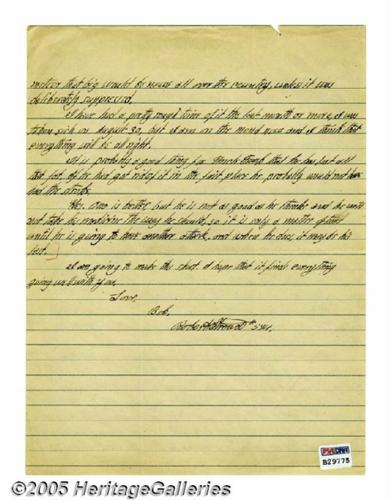 meteor that big would be news all over the country, unless it was
deliberately suppressed.
I have had a pretty rough time of it the last month or more, I was
taken sick on August 30, but I am on the mend now and I think that
everything will be all right.
It is probably a good thing for that he has
had the
Mr. is better but he is not as good as he thinks and he will
not take his medicine the way he should, so it is only a matter of time
until he is going to have another attack, and when he does, it may be his
last.
I am going to make this short & hope that it finds everything
going well with you.
Love,
Bob.
PSA/DNA
B29775
©2005 HeritageGalleries